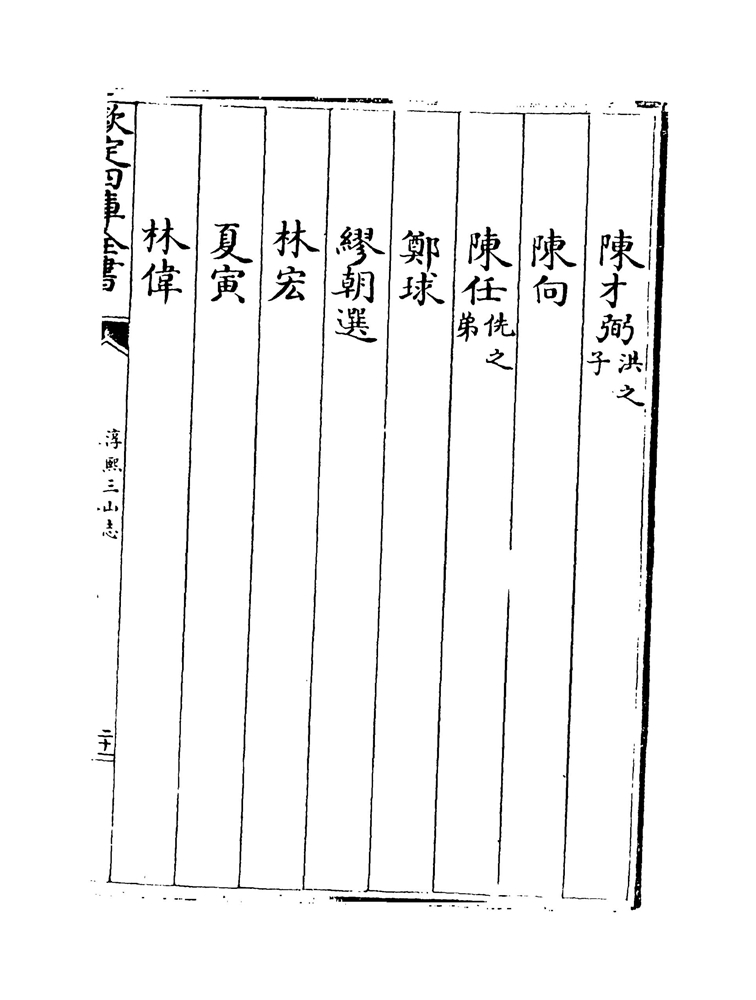 陳才弼洪之子
陳向
陳任侁之弟
鄭球
繆朝選
林宏
夏寅
林偉
欽定四庫全書
淳熙三山志
二十一